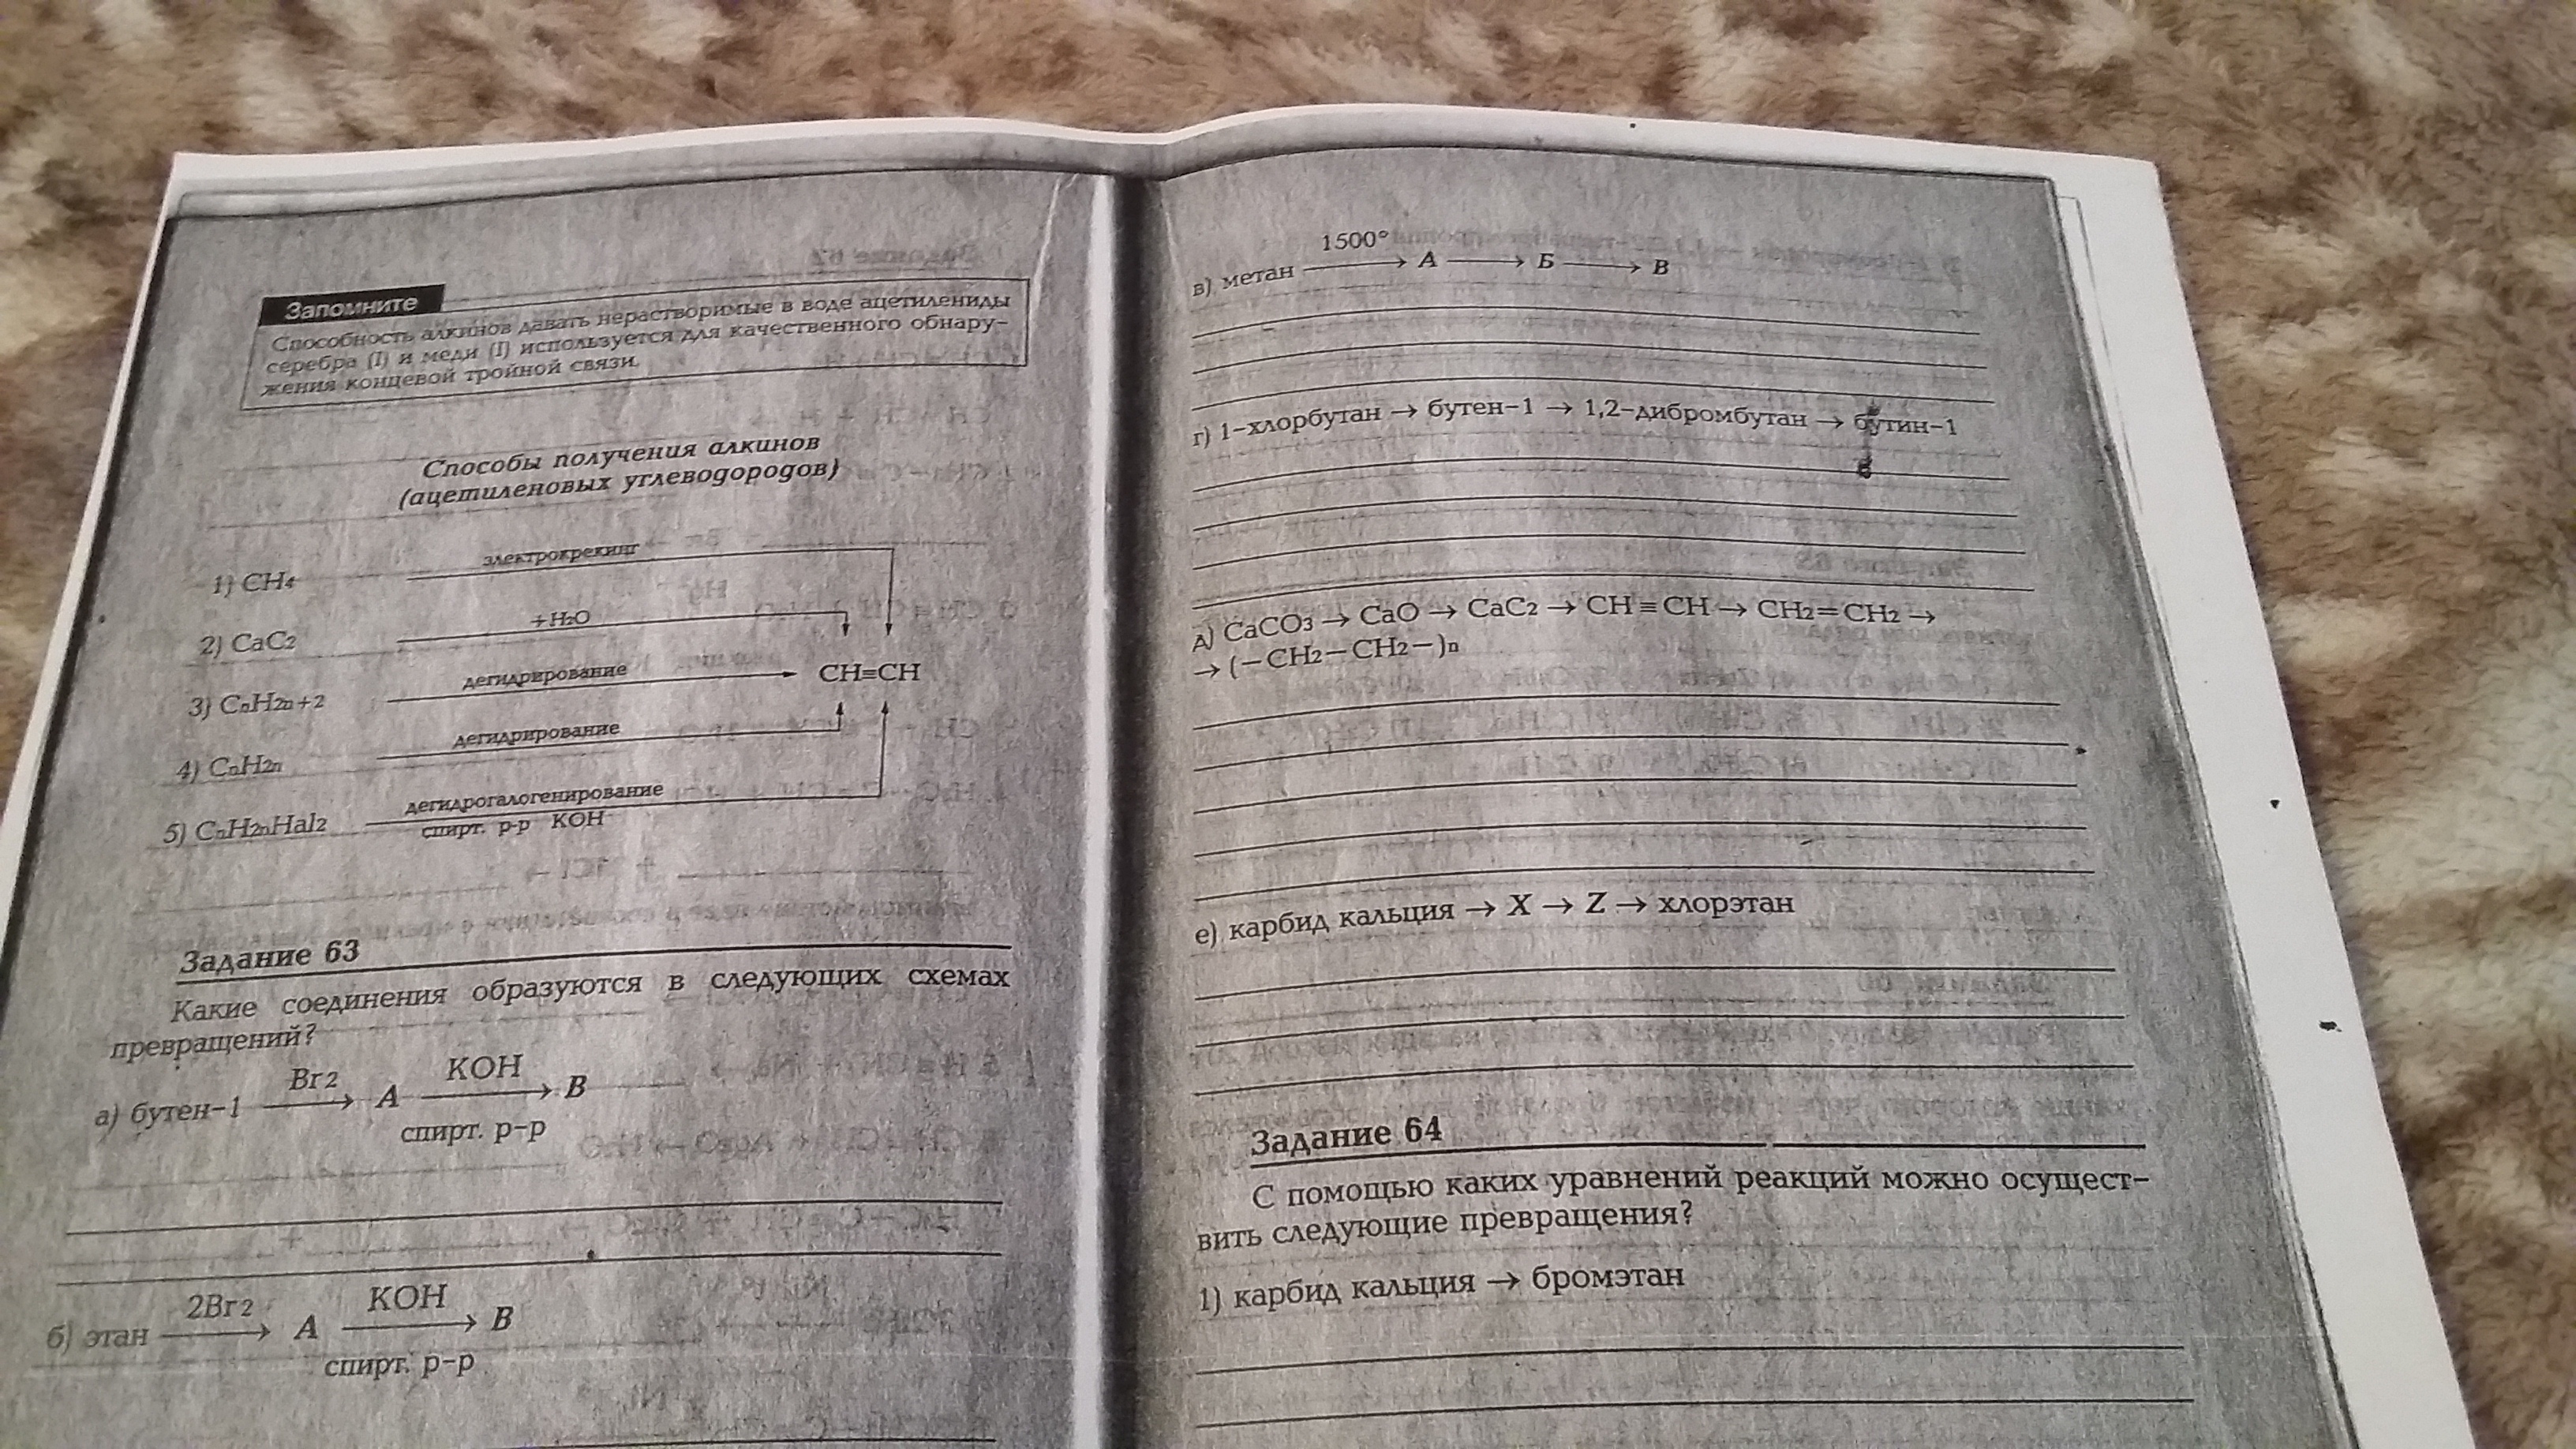 Запомните
Способность алкинов давать нерастворимые в воде ацетилениды
серебра (I) и меди (I) используется для качественного обнару-
жения концевой тройной связи.
Способы получения алкинов
(ацетиленовых углеводородов)
1) CH4 электрокрекинг
2) CaC2 +H2O
3) CnH2n+2 дегидрирование CH≡CH
4) CnH2n дегидрирование
5) CnH2nHal2 дегидрогалогенирование
спирт. р-р KOH
Задание 63
Какие соединения образуются в следующих схемах
превращений?
Br2 KOH
а) бутен-1 → А → В
спирт. р-р
2Br2 KOH
б) этан → А → В
спирт. р-р
1500°
в) метан → А → Б → В
г) 1-хлорбутан → бутен-1 → 1,2-дибромбутан → бутин-1
д) CaCO3 → CaO → CaC2 → CH≡CH → CH2=CH2 →
→ (−CH2−CH2−)n
е) карбид кальция → X → Z → хлорэтан
Задание 64
С помощью каких уравнений реакций можно осущест-
вить следующие превращения?
1) карбид кальция → бромэтан